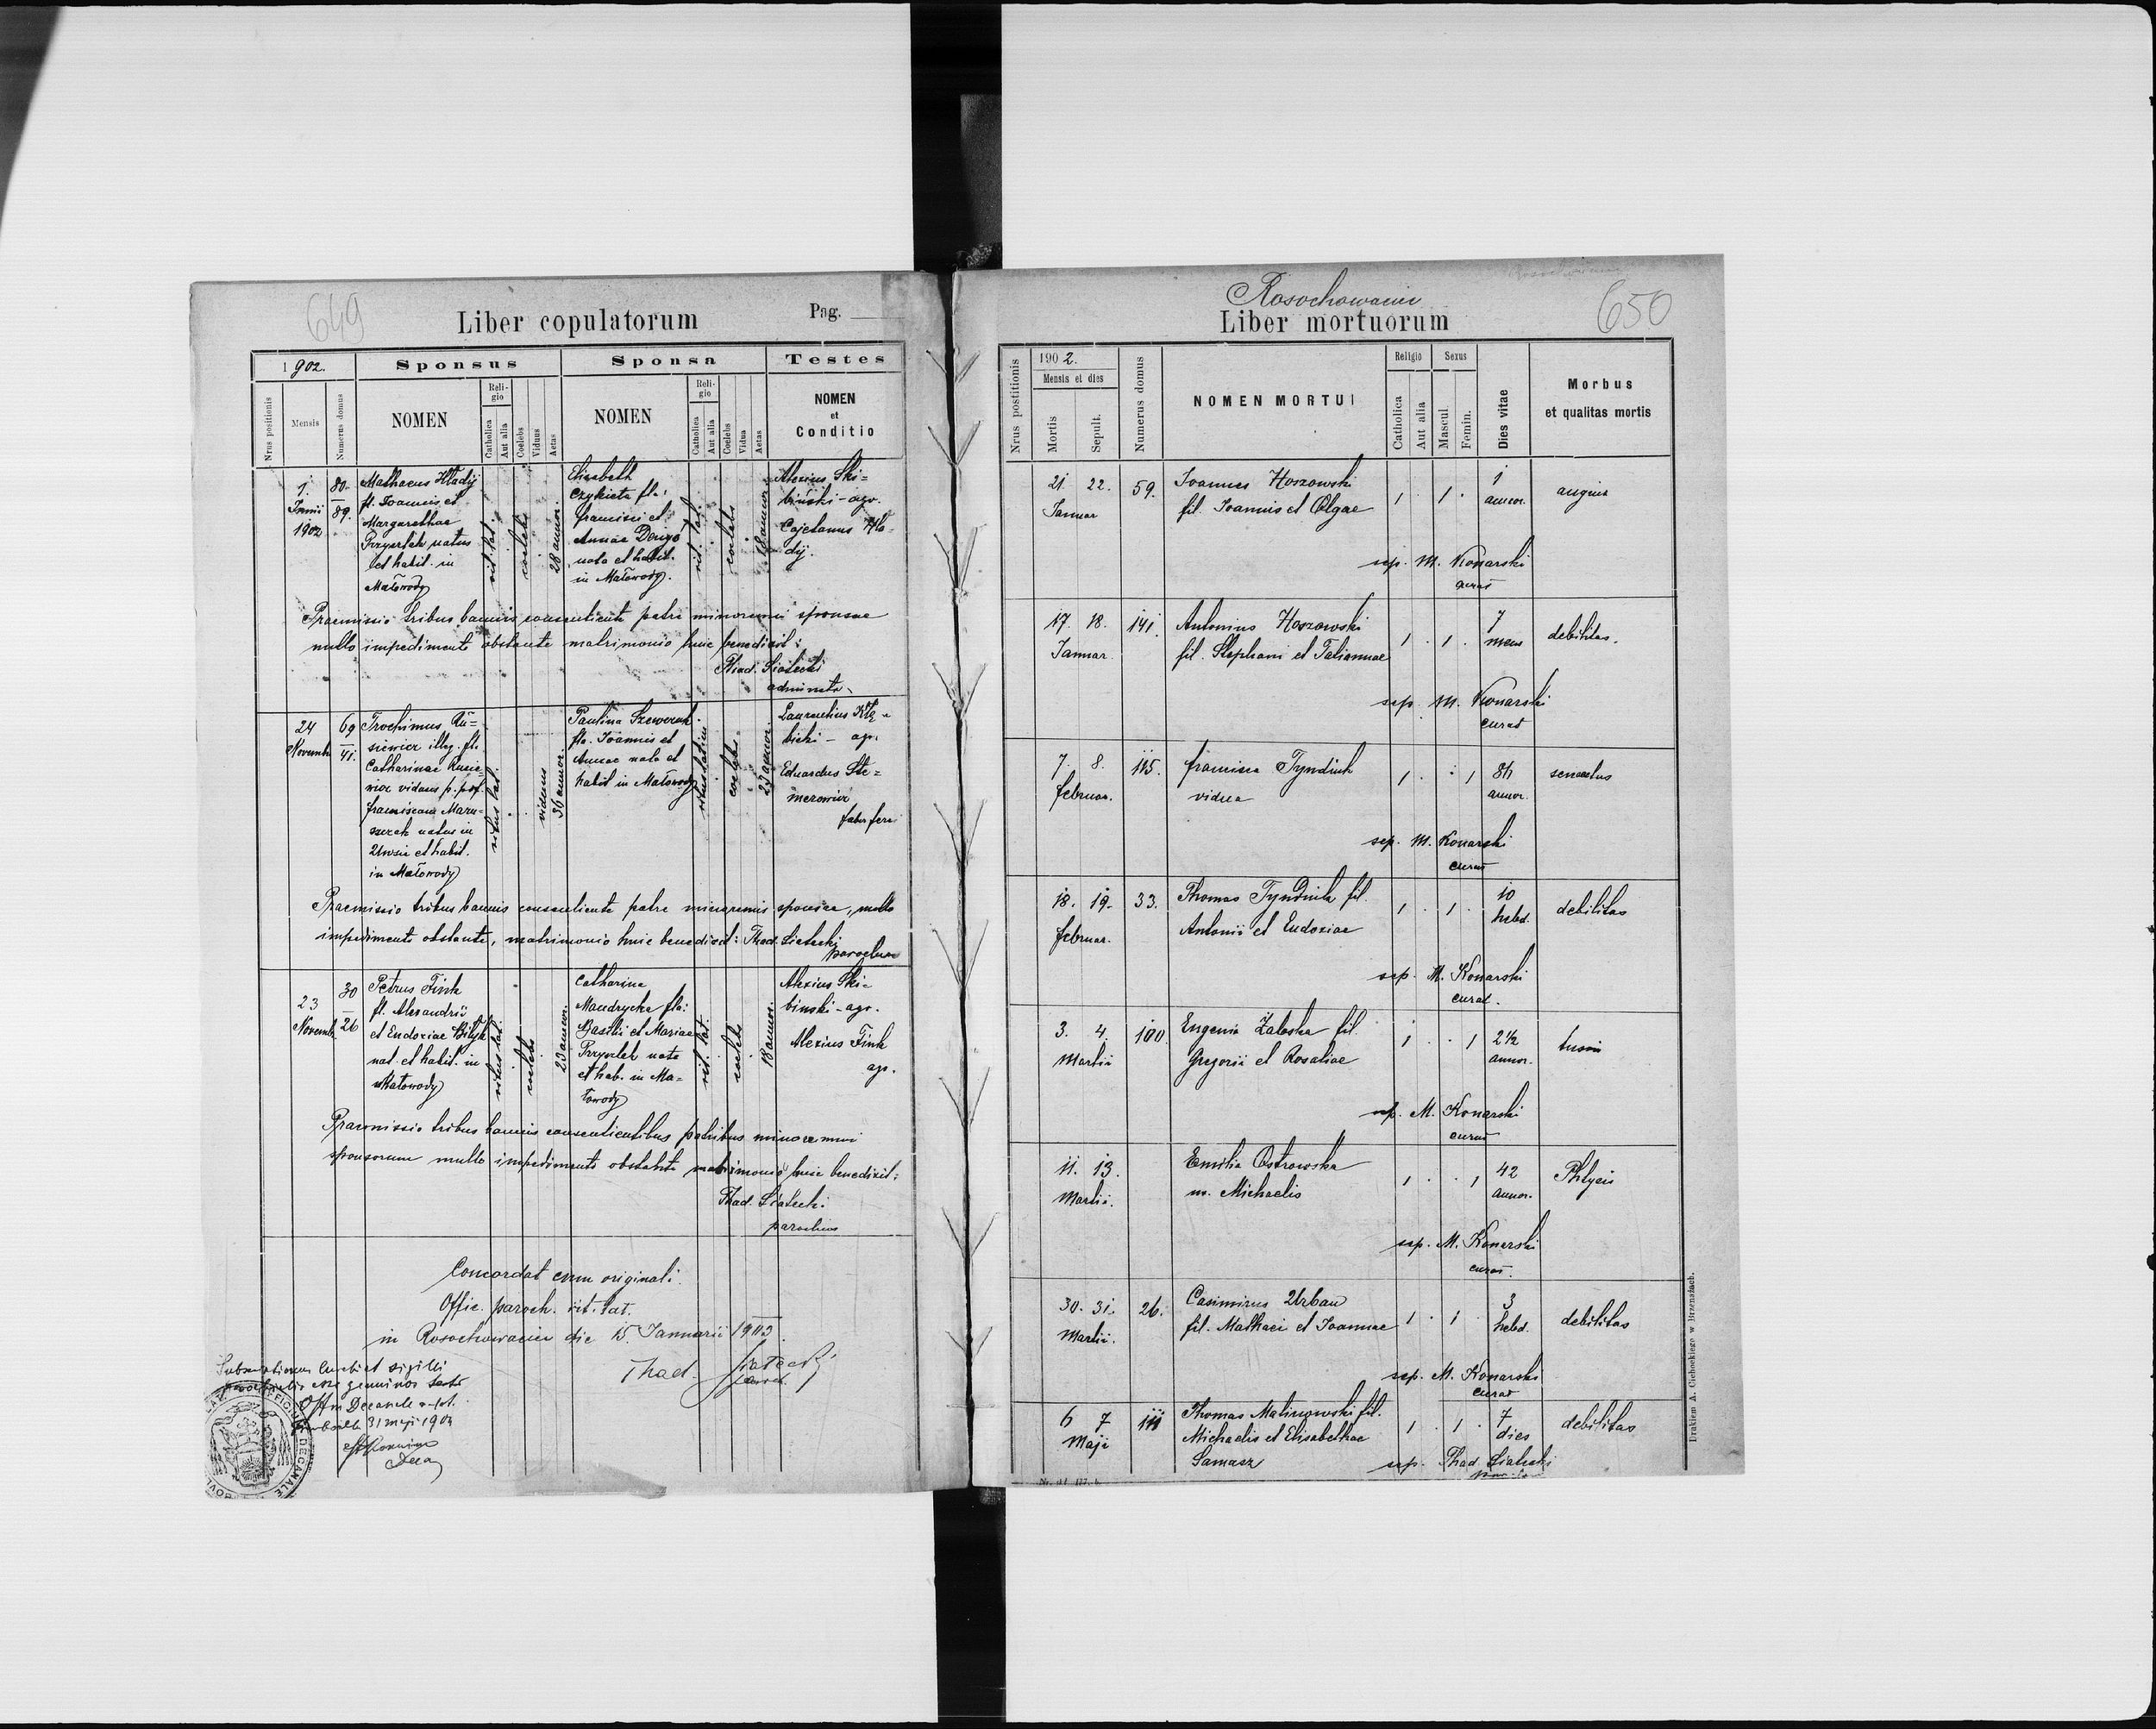 649
Liber copulatorum
Pag.
1902.
Sponsus
Sponsa
Testes
Nrus positionis
Mensis
Numerus domus
NOMEN
Religio
Catholica
Aut alia
Coelebs
Viduus
Aetas
NOMEN
Religio
Catholica
Aut alia
Coelebs
Vidua
Aetas
NOMEN
et
Conditio
1.
Junii
1902
80
89.
Mathaeus Hładij
fl. Joannis et
Margarethae
Przyszlak natus
et habit. in
Małowody
rit. lat.
coelebs
28 annor.
Elisabeth
fla.
francisci et
Annae
nata et habit.
in Małowody.
rit. lat.
coelebs
18 annor.
Alexius Ski=
biński - agr.
Cajetanus Hła-
dij.
Praemissis tribus bannis consentiente patre minorenni sponsae
nullo impedimento obstante matrimonio huic benedixit:
Thad. Siatecki
24
Novemb.
69
41.
Trochimus Ru=
siewicz illeg. fl.
Catharinae Rusie=
wicz viduus p. p.
natus in
et habit.
in Małowody
ritus lat.
viduus
36 annor.
Paulina Szewczuk
fla. Joannis et
Annae nata et
habit in Małowody
ritus latini
coelebs
23 annor.
Laurentius
bicki - agr.
Eduardus
faber
Praemissis tribus bannis consentiente patre minorennis sponsae, nullo
impedimento obstante, matrimonio huic benedixit: Thad. Siatecki
parochus
23
Novemb.
30
26
Petrus Fink
fl. Alexandri
et Eudoxiae Bilyk
nat. et habit. in
Małowody
ritus lat.
coelebs
23 annor.
Catharina
Mandrycka fla.
Basilii et Mariae
Przyszlak nata
et hab. in Ma=
łowody
rit. lat.
coelebs
18 annor.
Alexius Ski=
binski - agr.
Alexius Fink
agr.
Praemissis tribus bannis consentientibus patribus minorenni
sponsorum nullo impedimento obstante matrimonio huic benedixit:
Thad. Siatecki.
parochus
Concordat cum originali.
Offic. paroch. rit. lat.
in Rosochowaciec die 15. Januarii 1903.
Thad. Siatecki
31 maji 1904
DECANALE
Rosochowaciec
Liber mortuorum
650
Nrus postitionis
1902.
Mensis et dies
Mortis
Sepult.
Numerus domus
NOMEN MORTUI
Religio
Catholica
Aut alia
Sexus
Mascul.
Femin.
Dies vitae
Morbus
et qualitas mortis
21. 22. 59. Joannes Hoszowski 1 . 1 . 1 angina
Januar fil. Joannis et Olgae annor.
sep. M. Konarski
curat
17. 18. 141. Antonius Hoszowski 1 . 1 . 7 debilitas.
Januar. fil. Stephani et Tatiannae mens
sep. M. Konarski
curat
7. 8. 115. francisca Tyndiuk 1 . . 1 84 senectus
februar. vidua annor.
sep. M. Konarski
curat
18. 19. 33. Thomas Tyndiuk fil. 1 . 1 . 10 debilitas
februar. Antonii et Eudoxiae hebd.
sep. M. Konarski
curat.
3. 4. 100 Eugenia Zaleska fil. 1 . . 1 2½ tussis
Martii Gregorii et Rosaliae annor.
sep. M. Konarski
curat
11. 13. Emilia Ostrowska 1 . . 1 42 Phtysis
Martii. m. Michaelis annor.
sep. M. Konarski
curat.
30. 31. 26. Casimirus Urban 1 . 1 . 3 debilitas
Martii. fil. Mathaei et Joannae hebd.
sep. M. Konarski
curat
6 7 111 Thomas Malinowski fil. 1 . 1 . 7 debilitas
Maji Michaelis et Elisabethae dies
Samasz sep. Thad. Siatecki
Drukiem A. Ciebockiego w Brzeżanach.